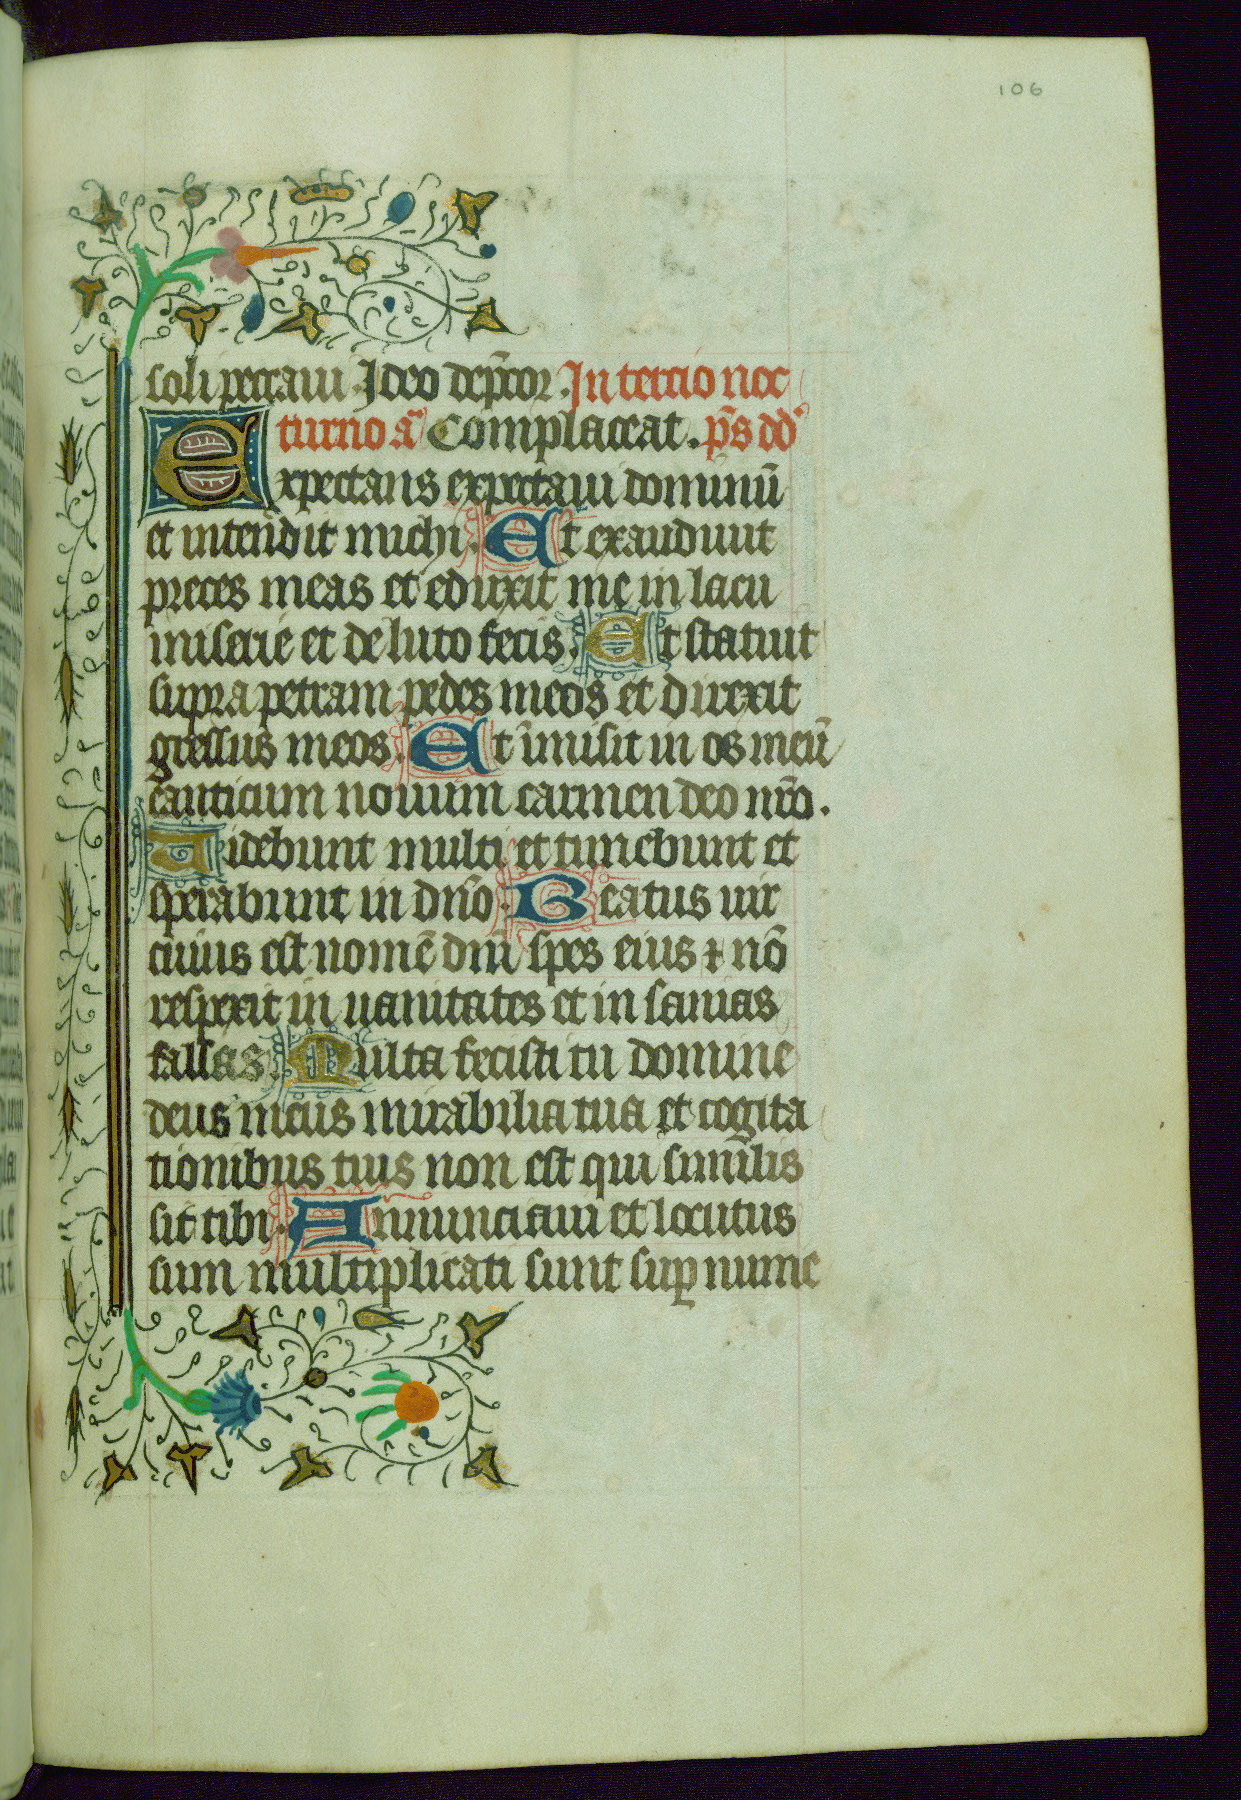 106
soli peccaui. Ideo dep̄cor. In tercio noc
turno a᷈ Complaceat. p̄s dd
Expectans expectaui dominū
et intendit michi. Et exaudiuit
preces meas et eduxit me in lacu
miserie et de luto fecis. Et statuit
supra petram pedes meos et direxit
gressus meos. Et īmisit in os meū
canticum nouum carmen deo nr̄o.
Uidebunt multi et timebunt et
sperabunt in dn̄o. Beatus uir
cuius est nomē dn̄i spes eius ⁊ nō
respexit in uanitates et in sanias
fallas. Multa fecisti tu domine
deus meus mirabilia tua et cogita
tionibus tuis non est qui similis
sit tibi. Annunciaui et locutus
sum multiplicati sunt suꝑ nume